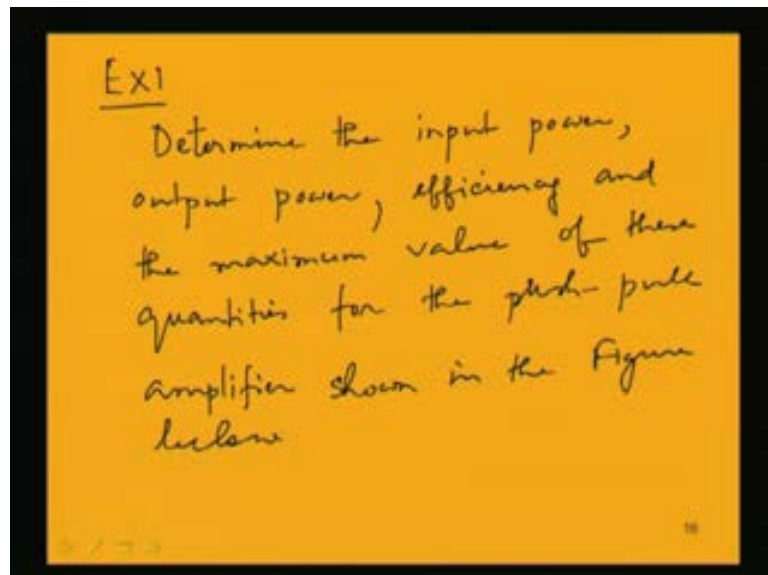 Ex1
Determine the input power,
output power, efficiency and
the maximum value of these
quantities for the push-pull
amplifier shown in the Figure
below
16